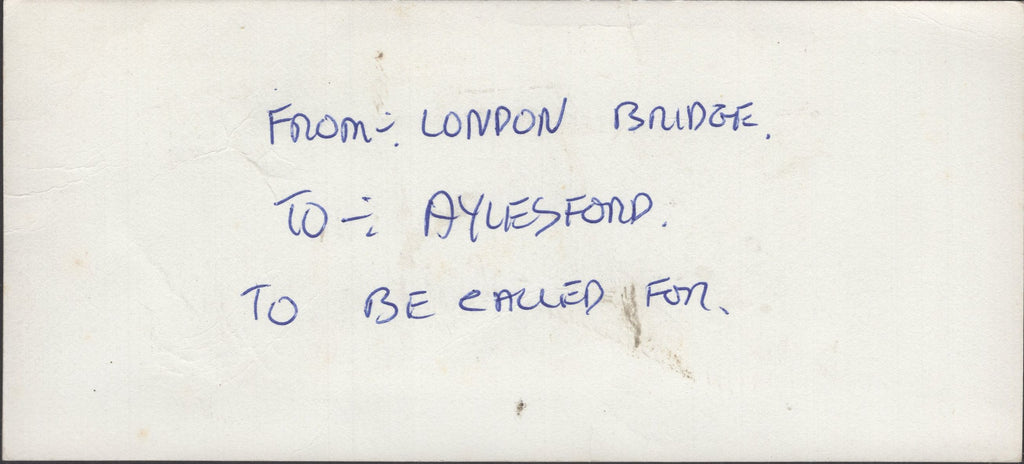 FROM:- LONDON BRIDGE.
TO:- AYLESFORD.
TO BE CALLED FOR.